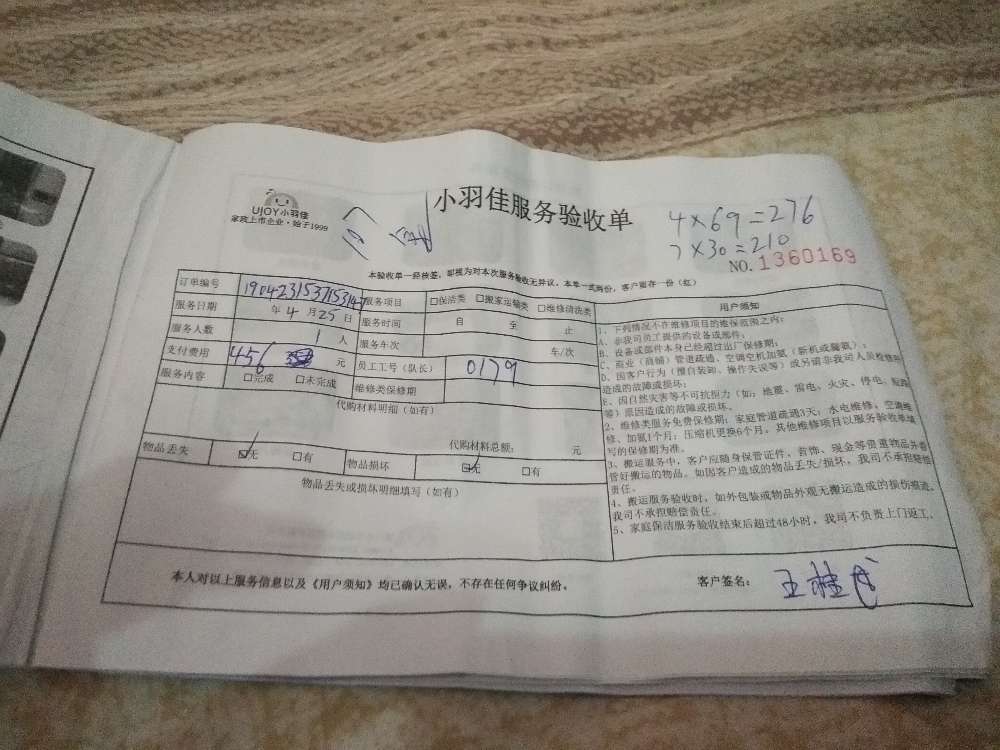 UJOY小羽佳
家政上市企业·始于1999
小羽佳服务验收单
4×69=276
7×30=210
NO.1360169
本验收单一经核签，即视为对本次服务验收无异议。本单一式两份，客户留存一份（红）
订单编号
服务项目 □保洁类 □搬家运输类 □维修清洗类
服务日期 年4月25日
服务时间 自 至 止
服务人数 1人
服务车次 车/次
支付费用 456 元
员工工号（队长） 0179
服务内容 □完成 □未完成
维修类保修期
代购材料明细（如有）
代购材料总额： 元
物品丢失 ☑无 □有 物品损坏 ☑无 □有
物品丢失或损坏明细填写（如有）
用户须知
1、下列情况不在维修项目的维保范围之内：
A、非我司员工提供的设备或部件；
B、设备或部件本身已经超过出厂保修期；
C、商业（商铺）管道疏通、空调空机加氨（新机或漏氨）；
D、因客户行为（擅自装卸、操作失误等）或另请非我司人员检修而
造成的故障或损坏；
E、因自然灾害等不可抗拒力（如：地震、雷电、火灾、停电、短路
等）原因造成的故障或损坏。
2、维修类服务免费保修期：家庭管道疏通3天；水电维修、空调维
修、加氨1个月；压缩机更换6个月。其他维修项目以服务验收单填
写的保修期为准。
3、搬运服务中，客户应随身保管证件、首饰、现金等贵重物品并看
管好搬运的物品。如因客户造成的物品丢失/损坏，我司不承担赔偿
责任。
4、搬运服务验收时，如外包装或物品外观无搬运造成的损伤痕迹，
我司不承担赔偿责任。
5、家庭保洁服务验收结束后超过48小时，我司不负责上门返工。
本人对以上服务信息以及《用户须知》均已确认无误，不存在任何争议纠纷。
客户签名： 王桂